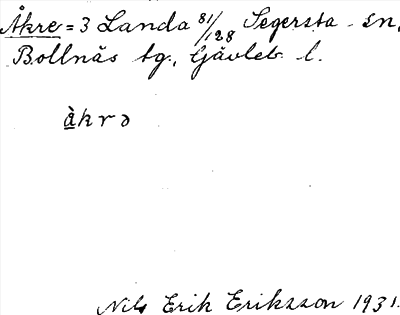 Åkre = 3 Landa 81/128 Segersta sn,
Bollnäs tg., Gävleb. l.
àkrə
Nils Erik Eriksson 1931.